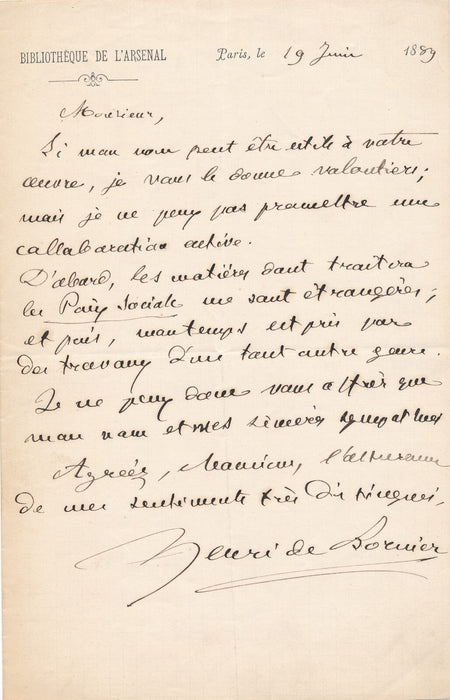 BIBLIOTHÈQUE DE L'ARSENAL
Paris, le 19 Juin 1889
Monsieur,
Si mon nom peut être utile à votre
œuvre, je vous le donne volontiers;
mais je ne peux pas promettre une
collaboration active.
D'abord, les matières dont traitera
la Paix Sociale me sont étrangères;
et puis, mon temps est pris par
des travaux d'un tout autre genre.
Je ne peux donc vous offrir que
mon nom et mes sincères sympathies
Agréez, Monsieur, l'assurance
de mes sentiments très distingués,
Henri de Bornier